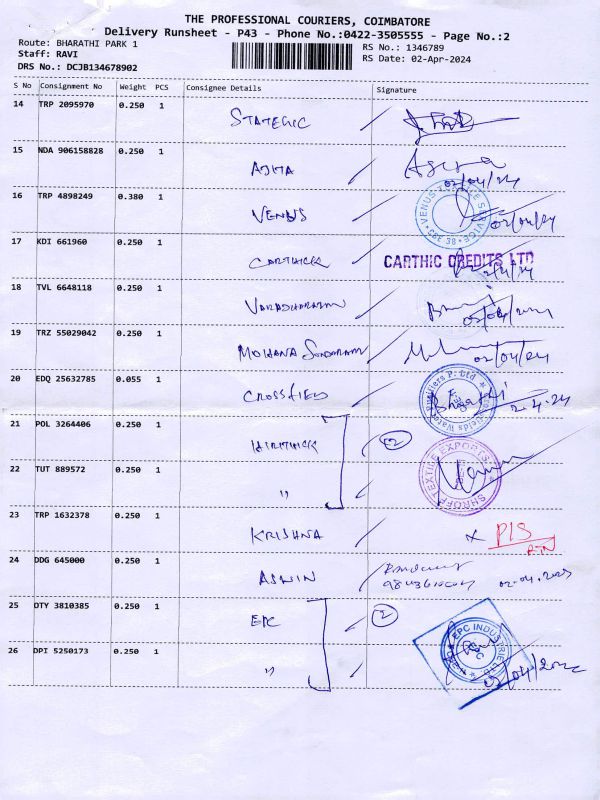 THE PROFESSIONAL COURIERS, COIMBATORE
Delivery Runsheet - P43 - Phone No.:0422-3505555 - Page No.:2
Route: BHARATHI PARK 1
Staff: RAVI
DRS No.: DCJB134678902
RS No.: 1346789
RS Date: 02-Apr-2024
S No Consignment No Weight PCS Consignee Details Signature
14 TRP 2095970 0.250 1 STATEGIC
15 NDA 906158828 0.250 1 02/04/24
16 TRP 4898249 0.380 1 VENUS 02/04/24
VENUS SERVICE CBE 38
17 KDI 661960 0.250 1 CARTHICK CARTHIC CREDITS LTD
18 TVL 6648118 0.250 1 VARADHARAJAN
19 TRZ 55029042 0.250 1 MOHANA SUNDARAM 02/04/24
20 EDQ 25632785 0.055 1 CROSSFIELD 2.4.24
21 POL 3264406 0.250 1 2
22 TUT 889572 0.250 1 "
SHROFF TEXTILE EXPORTS
23 TRP 1632378 0.250 1 KRISHNA x P/S
24 DDG 645000 0.250 1 ASWIN
25 DTY 3810385 0.250 1 EPC 2
EPC INDUSTRIE LTD
26 DPI 5250173 0.250 1 "